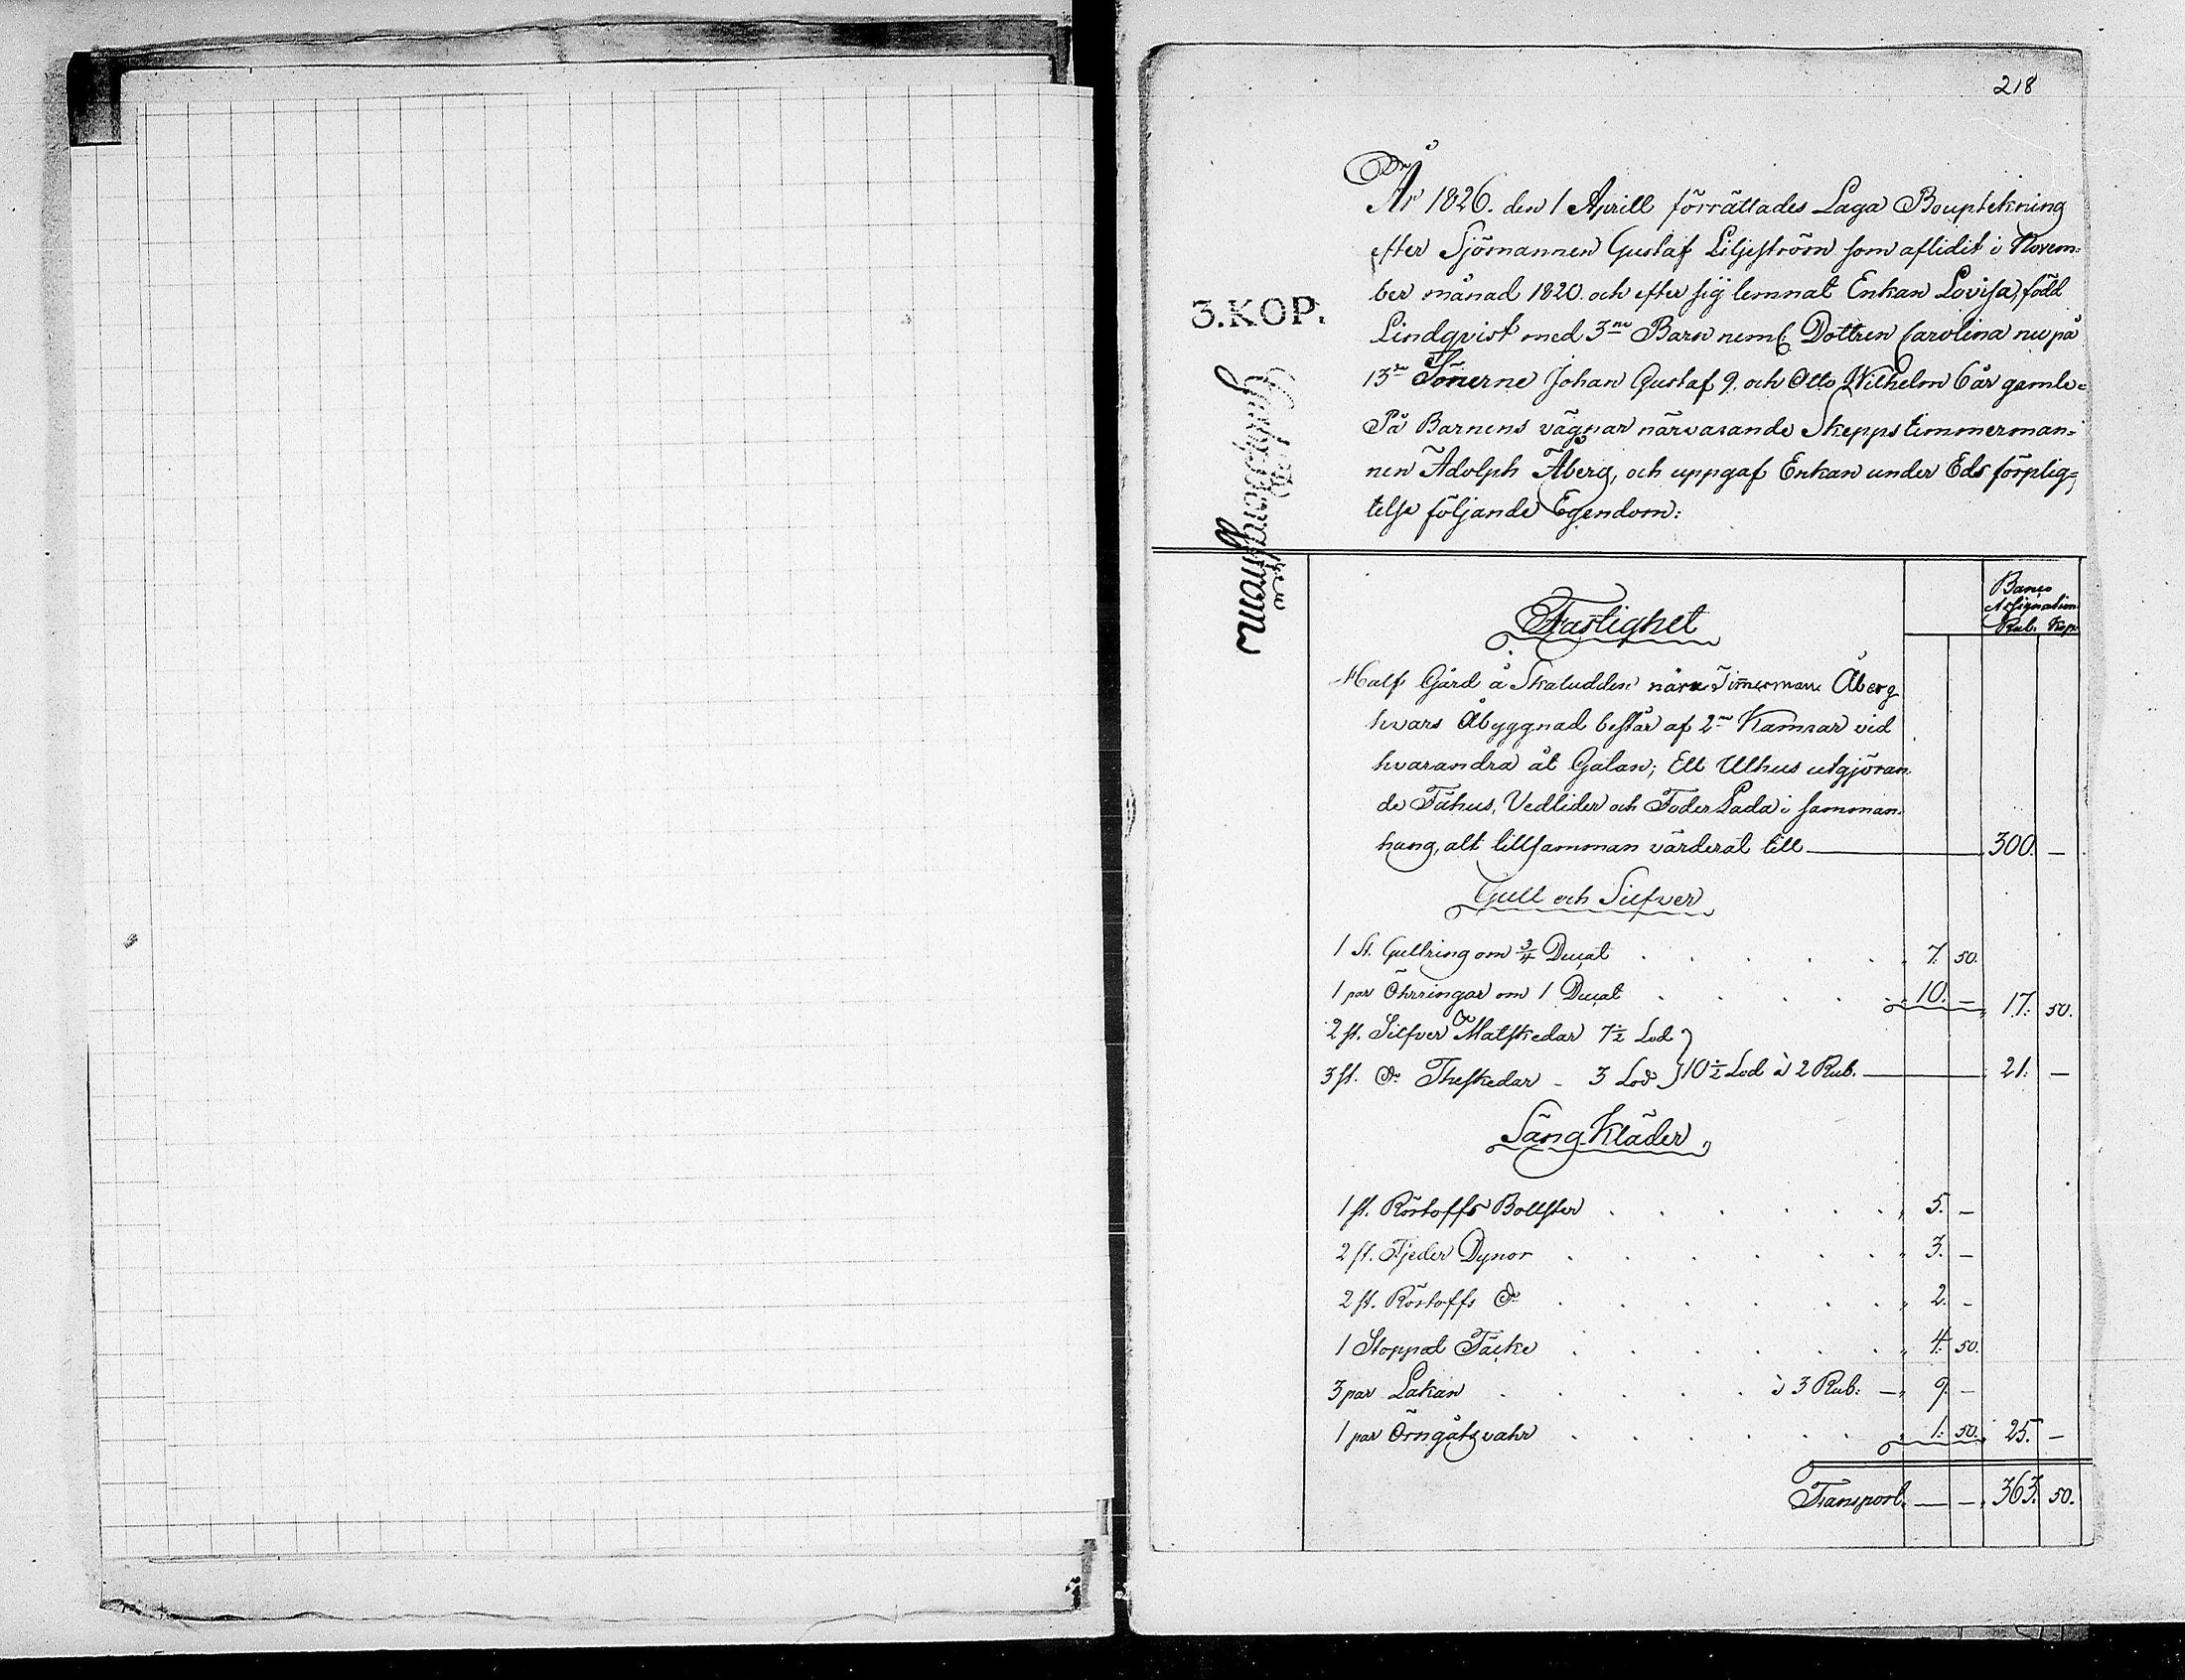 218
År 1826. den 1 Aprill förrättades Laga Bouptekning
efter Sjömannen Gustaf Liljeström som aflidit i Novem-
ber månad 1820. och efter sig lemnat Enkan Lovisa, född
Lindqvist med 3ne Barn neml. Dottren Carolina nu på
13de Sönerne Johan Gustaf 9. och Otto Wilhelm 6 år gamle.
På Barnens vägnar närvarande Skepps timmerman-
nen Adolph Åberg, och uppgaf Enkan under Eds förplig-
telse följande Egendom:
3.KOP.
Banco
Assignation
Rub. Kop.
Fastighet
Half Gård å Skaludden när Timerman Åberg
hvars Åbyggnad består af 2ne Kamrar vid
hvarandra åt Gatan; Ett Uthus utgjöran
de Fähus, Vedlider och Foder Lada i samman
hang, alt tillsamman värderat till — 300. —
Gull och Silfver
1 st. Gullring om 3/4 Ducat . . . . . 7. 50.
1 par Öhrringar om 1 Ducat . . . . . 10. — 17. 50.
2 st. Silfver Matskedar 7 1/2 Lod
3 st. do Theskedar - 3 Lod } 10 1/2 Lod à 2 Rub. — 21. —
Säng Kläder
1 st. Röstoffs Bollster . . . . . . 5. —
2 st. Fjeder Dynor . . . . . . 3. —
2 st. Röstoffs do . . . . . . 2. -
1 Stoppat Täcke . . . . . . 4. 50.
3 par Lakan . . . . . à 3 Rub. — 9. —
1 par Örngåtsvahr . . . . . . 1. 50. 25. —
Transport. — — 363. 50.